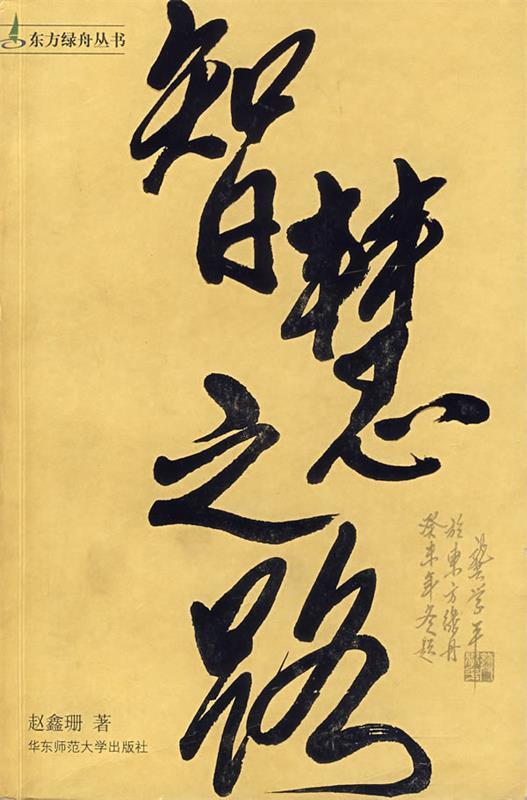 东方绿舟丛书
智慧
之路
龚学平
於東方綠舟
癸未年冬题
赵鑫珊 著
华东师范大学出版社